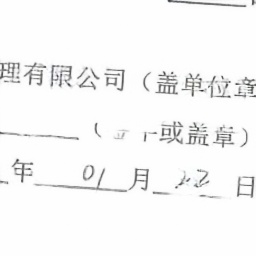 理有限公司（盖单位章
（ 或盖章）
年 01 月 22 日